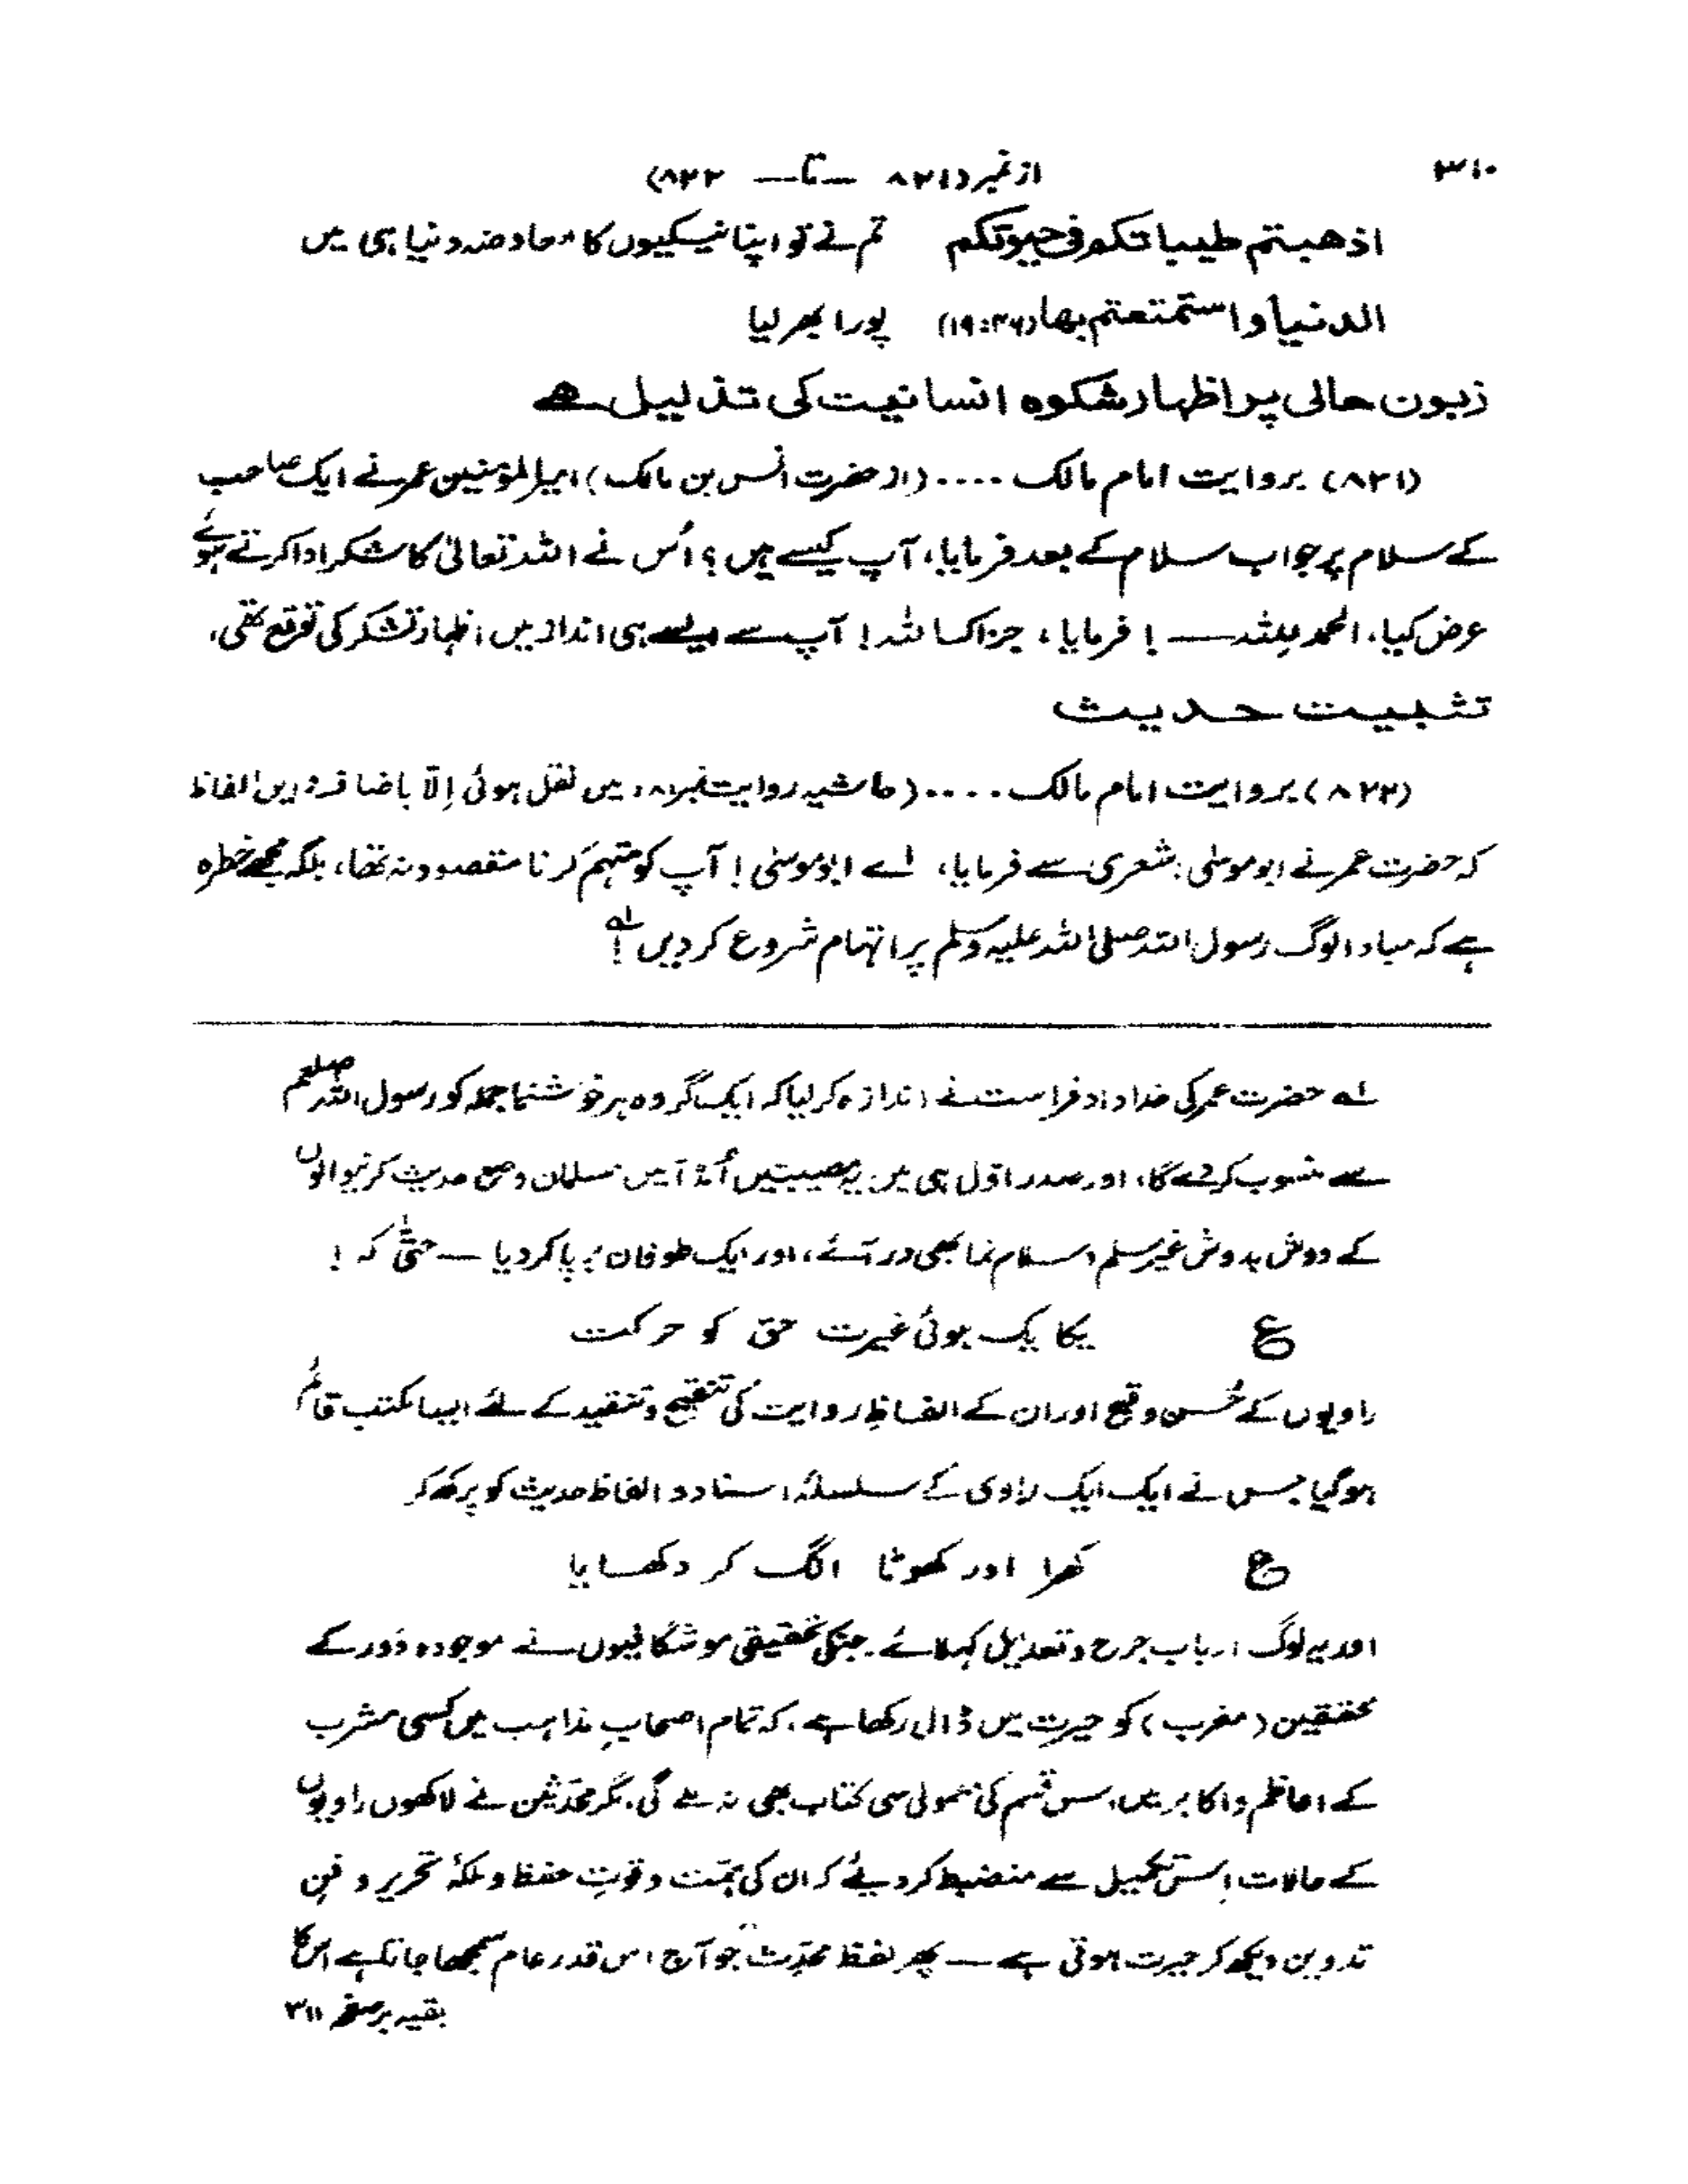 ۳۱۰
از نمبر (۸۲۱ — تا — ۸۲۲)
اذهبتم طیباتکم فی حیوتکم تم نے تو اپنا نیکیوں کا معاوضہ دنیا ہی میں
الدنیا واستمتعتم بها (۴۶:۱۹) پورا بھر لیا
زبون حالی پر اظہار شکوہ انسانیت کی تذلیل ہے
(۸۲۱) بروایت امام مالک .... (از حضرت انس بن مالک) امیر المؤمنین عمر نے ایک صاحب
کے سلام پر جواب سلام کے بعد فرمایا، آپ کیسے ہیں؟ اُس نے اللہ تعالیٰ کا شکر ادا کرتے ہوئے
عرض کیا، الحمد للہ — ! فرمایا، جزاکسا للہ! آپ سے ایسے ہی انداز میں اظہار تشکر کی توقع تھی،
تثبیت حدیث
(۸۲۲) بروایت امام مالک .... (حاشیہ روایت نمبر میں نقل ہوئی اِلّا باضافہ دریں الفاظ
کہ حضرت عمر نے ابو موسیٰ اشعری سے فرمایا، اے ابو موسیٰ! آپ کو متہم کرنا مقصود نہ تھا، بلکہ مجھے خطرہ
ہے کہ مبادا لوگ رسول اللہ صلی اللہ علیہ وسلم پر اتہام شروع کر دیں! لہ
لہ حضرت عمر کی خداداد فراست نے اندازہ کر لیا کہ ایک گروہ ہر خوشنما جملہ کو رسول اللہ صلعم
سے منسوب کر دے گا، اور صدر اوّل ہی میں یہ مصیبتیں اُمڈ آئیں مسلمان وضع حدیث کرنیوالوں
کے دوش بدوش غیر مسلم اسلام نما بھی در آئے، اور ایک طوفان برپا کر دیا — حتیّٰ کہ !
ع یکا یک ہوئی غیرت حق کو حرکت
راویوں کے حُسن و قبح اور ان کے الفاظِ روایت کی تنقیح و تنقید کے لئے ایسا مکتب قائم
ہو گیا جس نے ایک ایک راوی کے سلسلۂ اسناد و الفاظ حدیث کو پرکھ کر
ع کھرا اور کھوٹا الگ کر دکھایا
اور یہ لوگ ارباب جرح و تعدیل کہلائے۔ جنکی تحقیقی موشگافیوں نے موجودہ دَور کے
محققین (مغرب) کو حیرت میں ڈال رکھا ہے، کہ تمام اصحابِ مذاہب میں کسی مشرب
کے اعاظم و اکابر میں اس قسم کی معمولی سی کتاب بھی نہ ملے گی۔ مگر محدّثین نے لاکھوں راویوں
کے حالات اِس تکمیل سے منضبط کر دیئے کہ ان کی ہمّت و قوتِ حفظ و ملکۂ تحریر و فنِ
تدوین دیکھ کر حیرت ہوتی ہے — پھر لفظ محدّث جو آج اس قدر عام سمجھا جاتا ہے اس کا
بقیہ بر صفحہ ۳۱۱